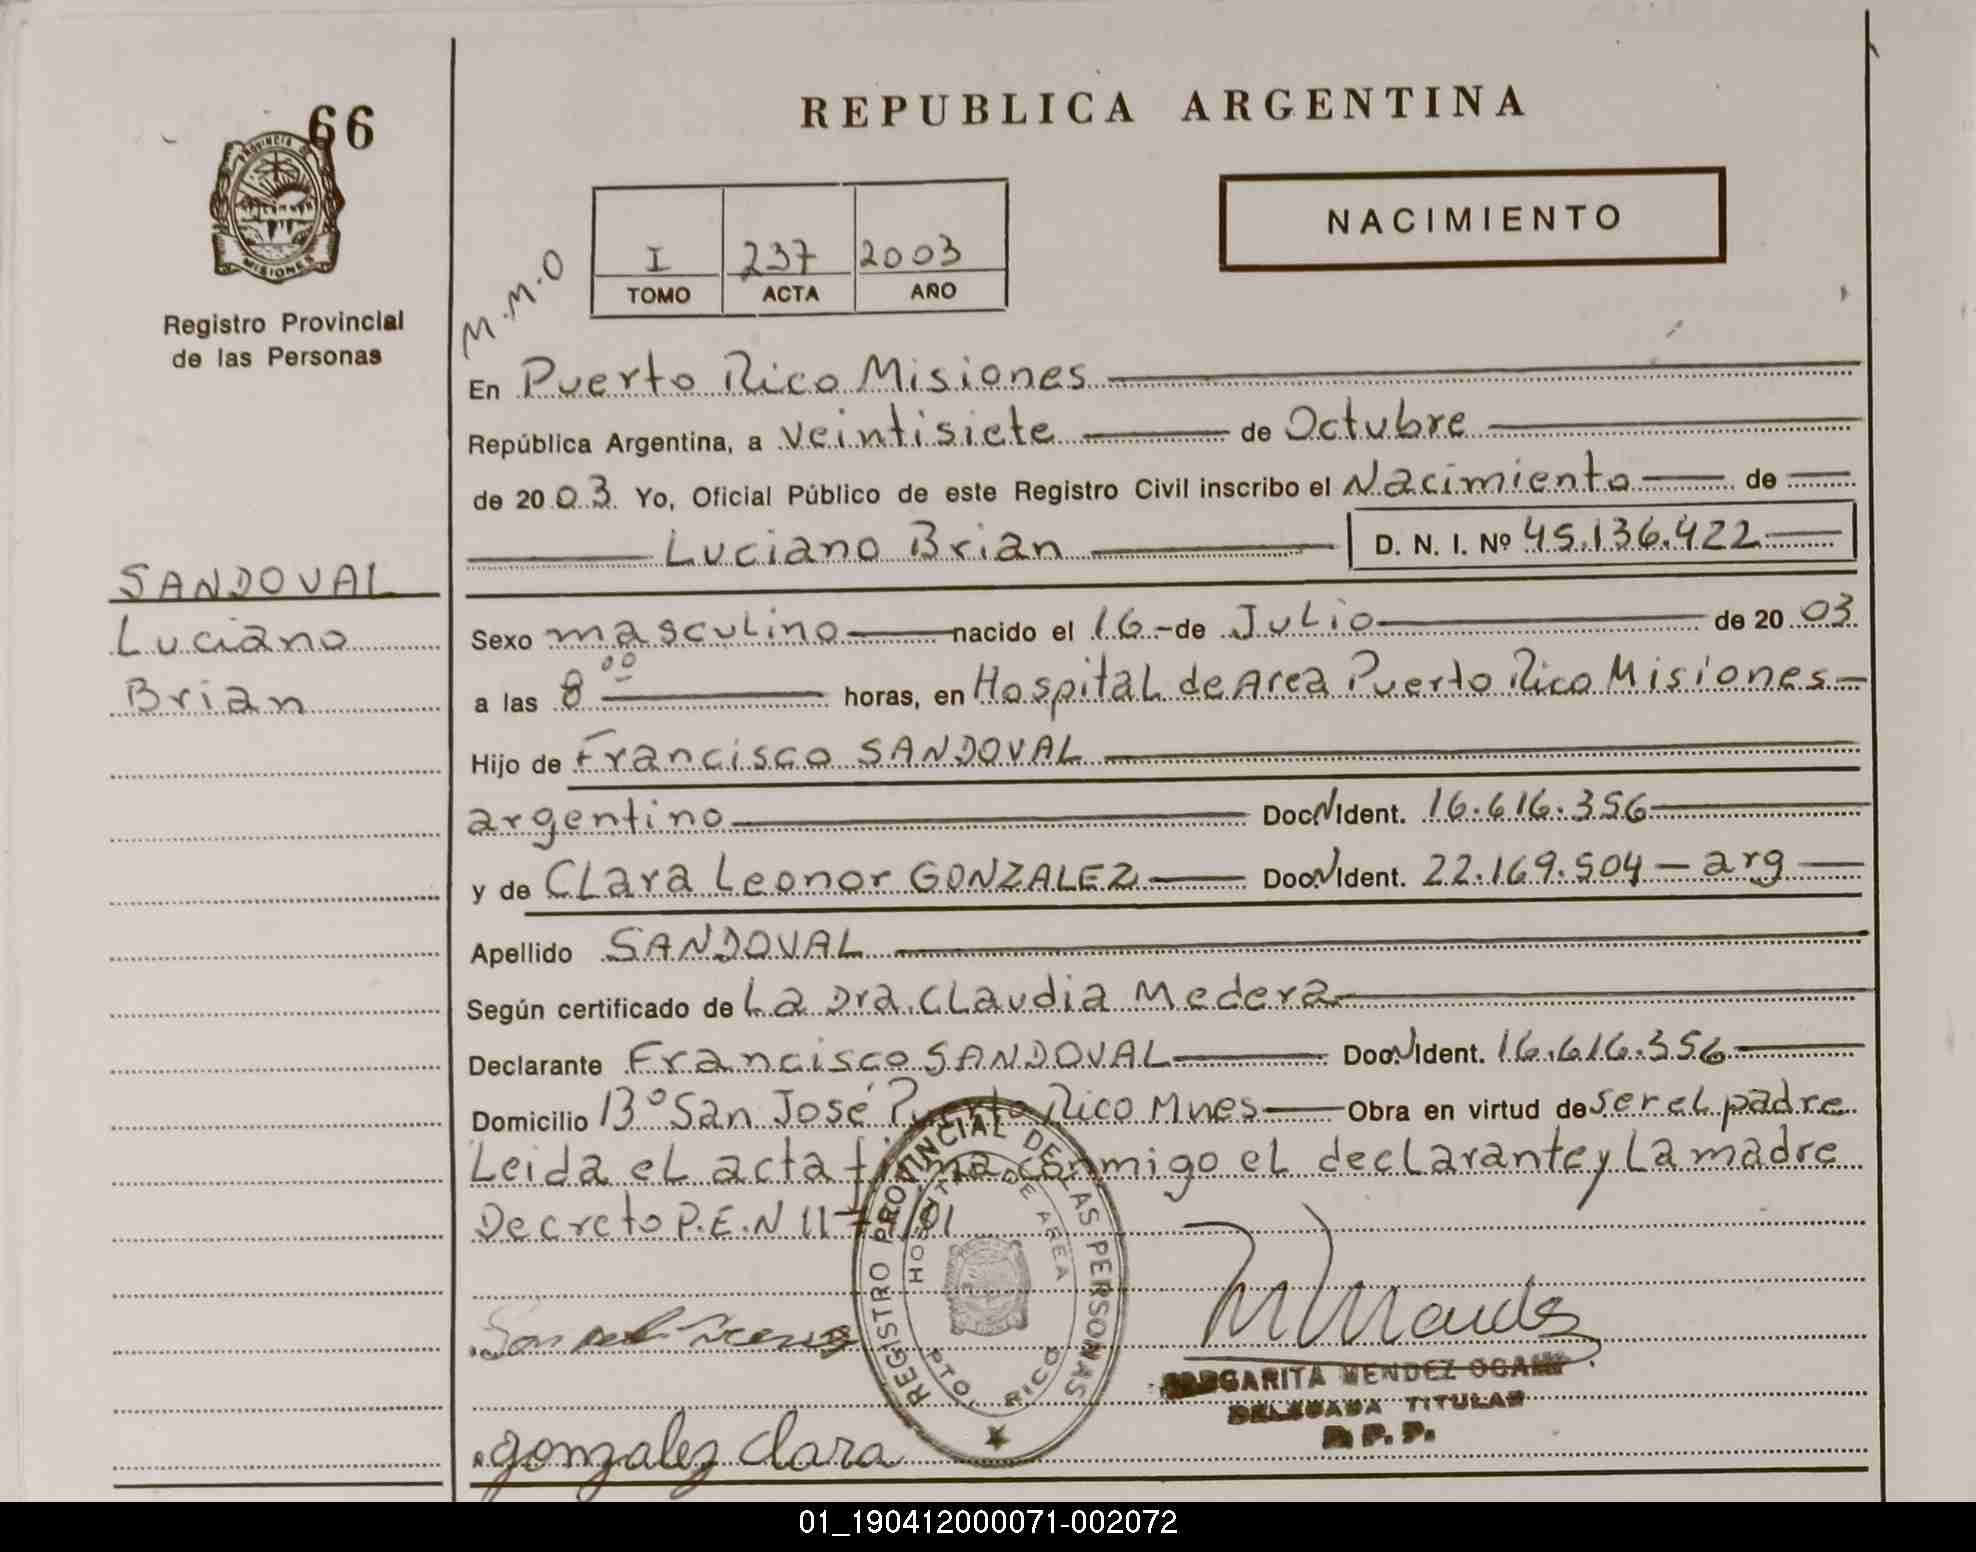 66
PROVINCIA DE
MISIONES
Registro Provincial
de las Personas
SANDOVAL
Luciano
Brian
REPUBLICA ARGENTINA
NACIMIENTO
M.M.O
I 237 2003
TOMO ACTA AÑO
En Puerto Rico Misiones
República Argentina, a veintisiete de Octubre
de 2003. Yo, Oficial Público de este Registro Civil inscribo el Nacimiento de
Luciano Brian D. N. I. Nº 45.136.422
Sexo masculino nacido el 16 - de Julio de 2003
a las 8 00 horas, en Hospital de Area Puerto Rico Misiones
Hijo de Francisco SANDOVAL
argentino Doc. N Ident. 16.616.356
y de Clara Leonor GONZALEZ Doc. N Ident. 22.169.504 - arg
Apellido SANDOVAL
Según certificado de La Dra. Claudia Medera
Declarante Francisco SANDOVAL Doc. N Ident. 16.616.356
Domicilio 13° San José Puerto Rico Mnes Obra en virtud de ser el padre
Leida el acta firma conmigo el declarante y la madre
Decreto P.E.N
REGISTRO PROVINCIAL DE LAS PERSONAS
HOSPITAL DE AREA
PTO. RICO
MARGARITA MENDEZ
DELEGADA TITULAR
R. P. P.
gonzalez clara
01_190412000071-002072